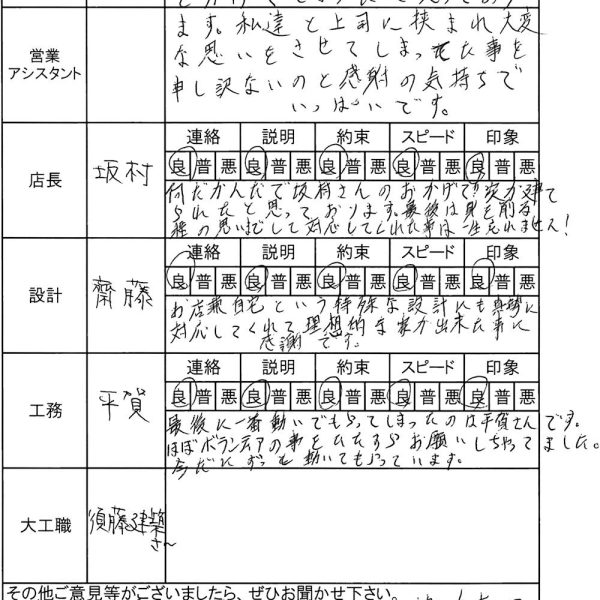 営業
アシスタント
ます。私達と上司に挟まれ大変
な思いをさせてしまった事を
申し訳ないのと感謝の気持ちで
いっぱいです。
店長
坂村
連絡 説明 約束 スピード 印象
良 普 悪 良 普 悪 良 普 悪 良 普 悪 良 普 悪
何だかんだで坂村さんのおかげで家が建て
られたと思っております。最後は身を削る
程の思いをして対応してくれた事は一生忘れません!
設計
齋藤
連絡 説明 約束 スピード 印象
良 普 悪 良 普 悪 良 普 悪 良 普 悪 良 普 悪
お店兼自宅という特殊な設計にも真摯に
対応してくれて理想的な家が出来た事に
感謝です。
工務
平賀
連絡 説明 約束 スピード 印象
良 普 悪 良 普 悪 良 普 悪 良 普 悪 良 普 悪
最後に一番動いてもらってしまったのは平賀さんです。
ほぼボランティアの事をひたすらお願いしちゃってました。
今だにずっと動いてもらっています。
大工職
須藤建築
さん
その他ご意見等がございましたら、ぜひお聞かせ下さい。